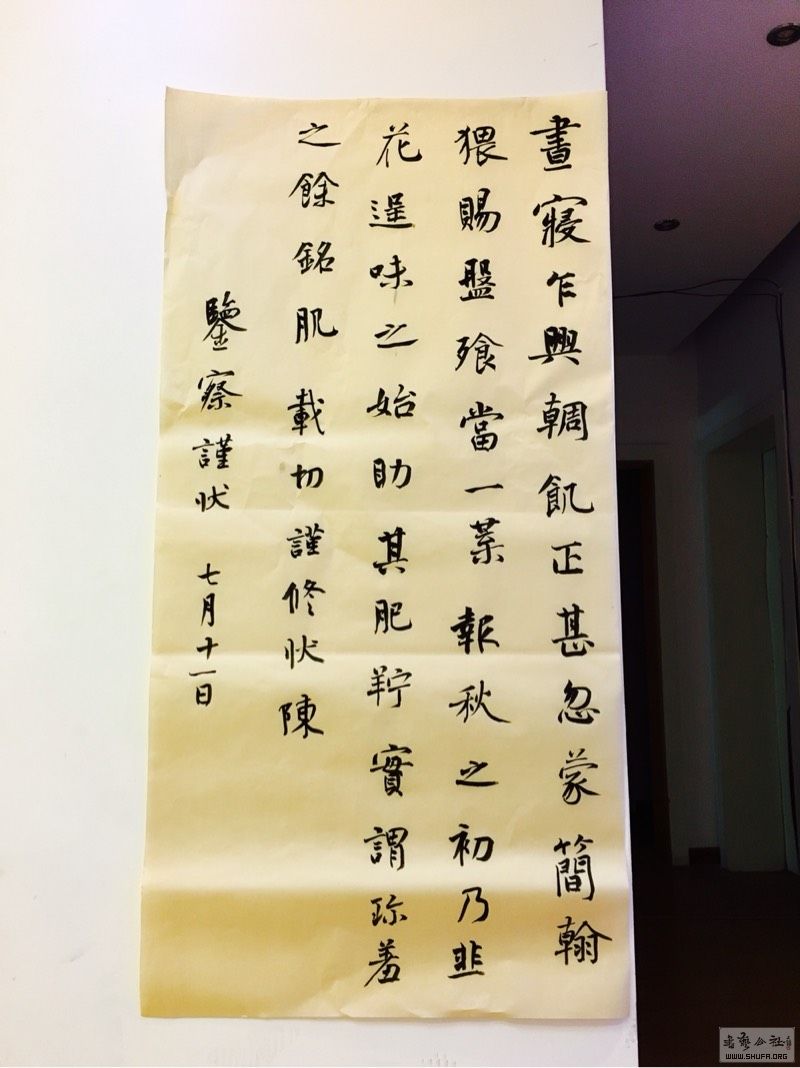 晝寢乍興輖飢正甚忽蒙簡翰
猥賜盤飱當一葉報秋之初乃韭
花逞味之始助其肥羜實謂珎羞
之餘銘肌載切謹修狀陳
鑒察謹狀 七月十一日
書藝公社
WWW.SHUFA.ORG